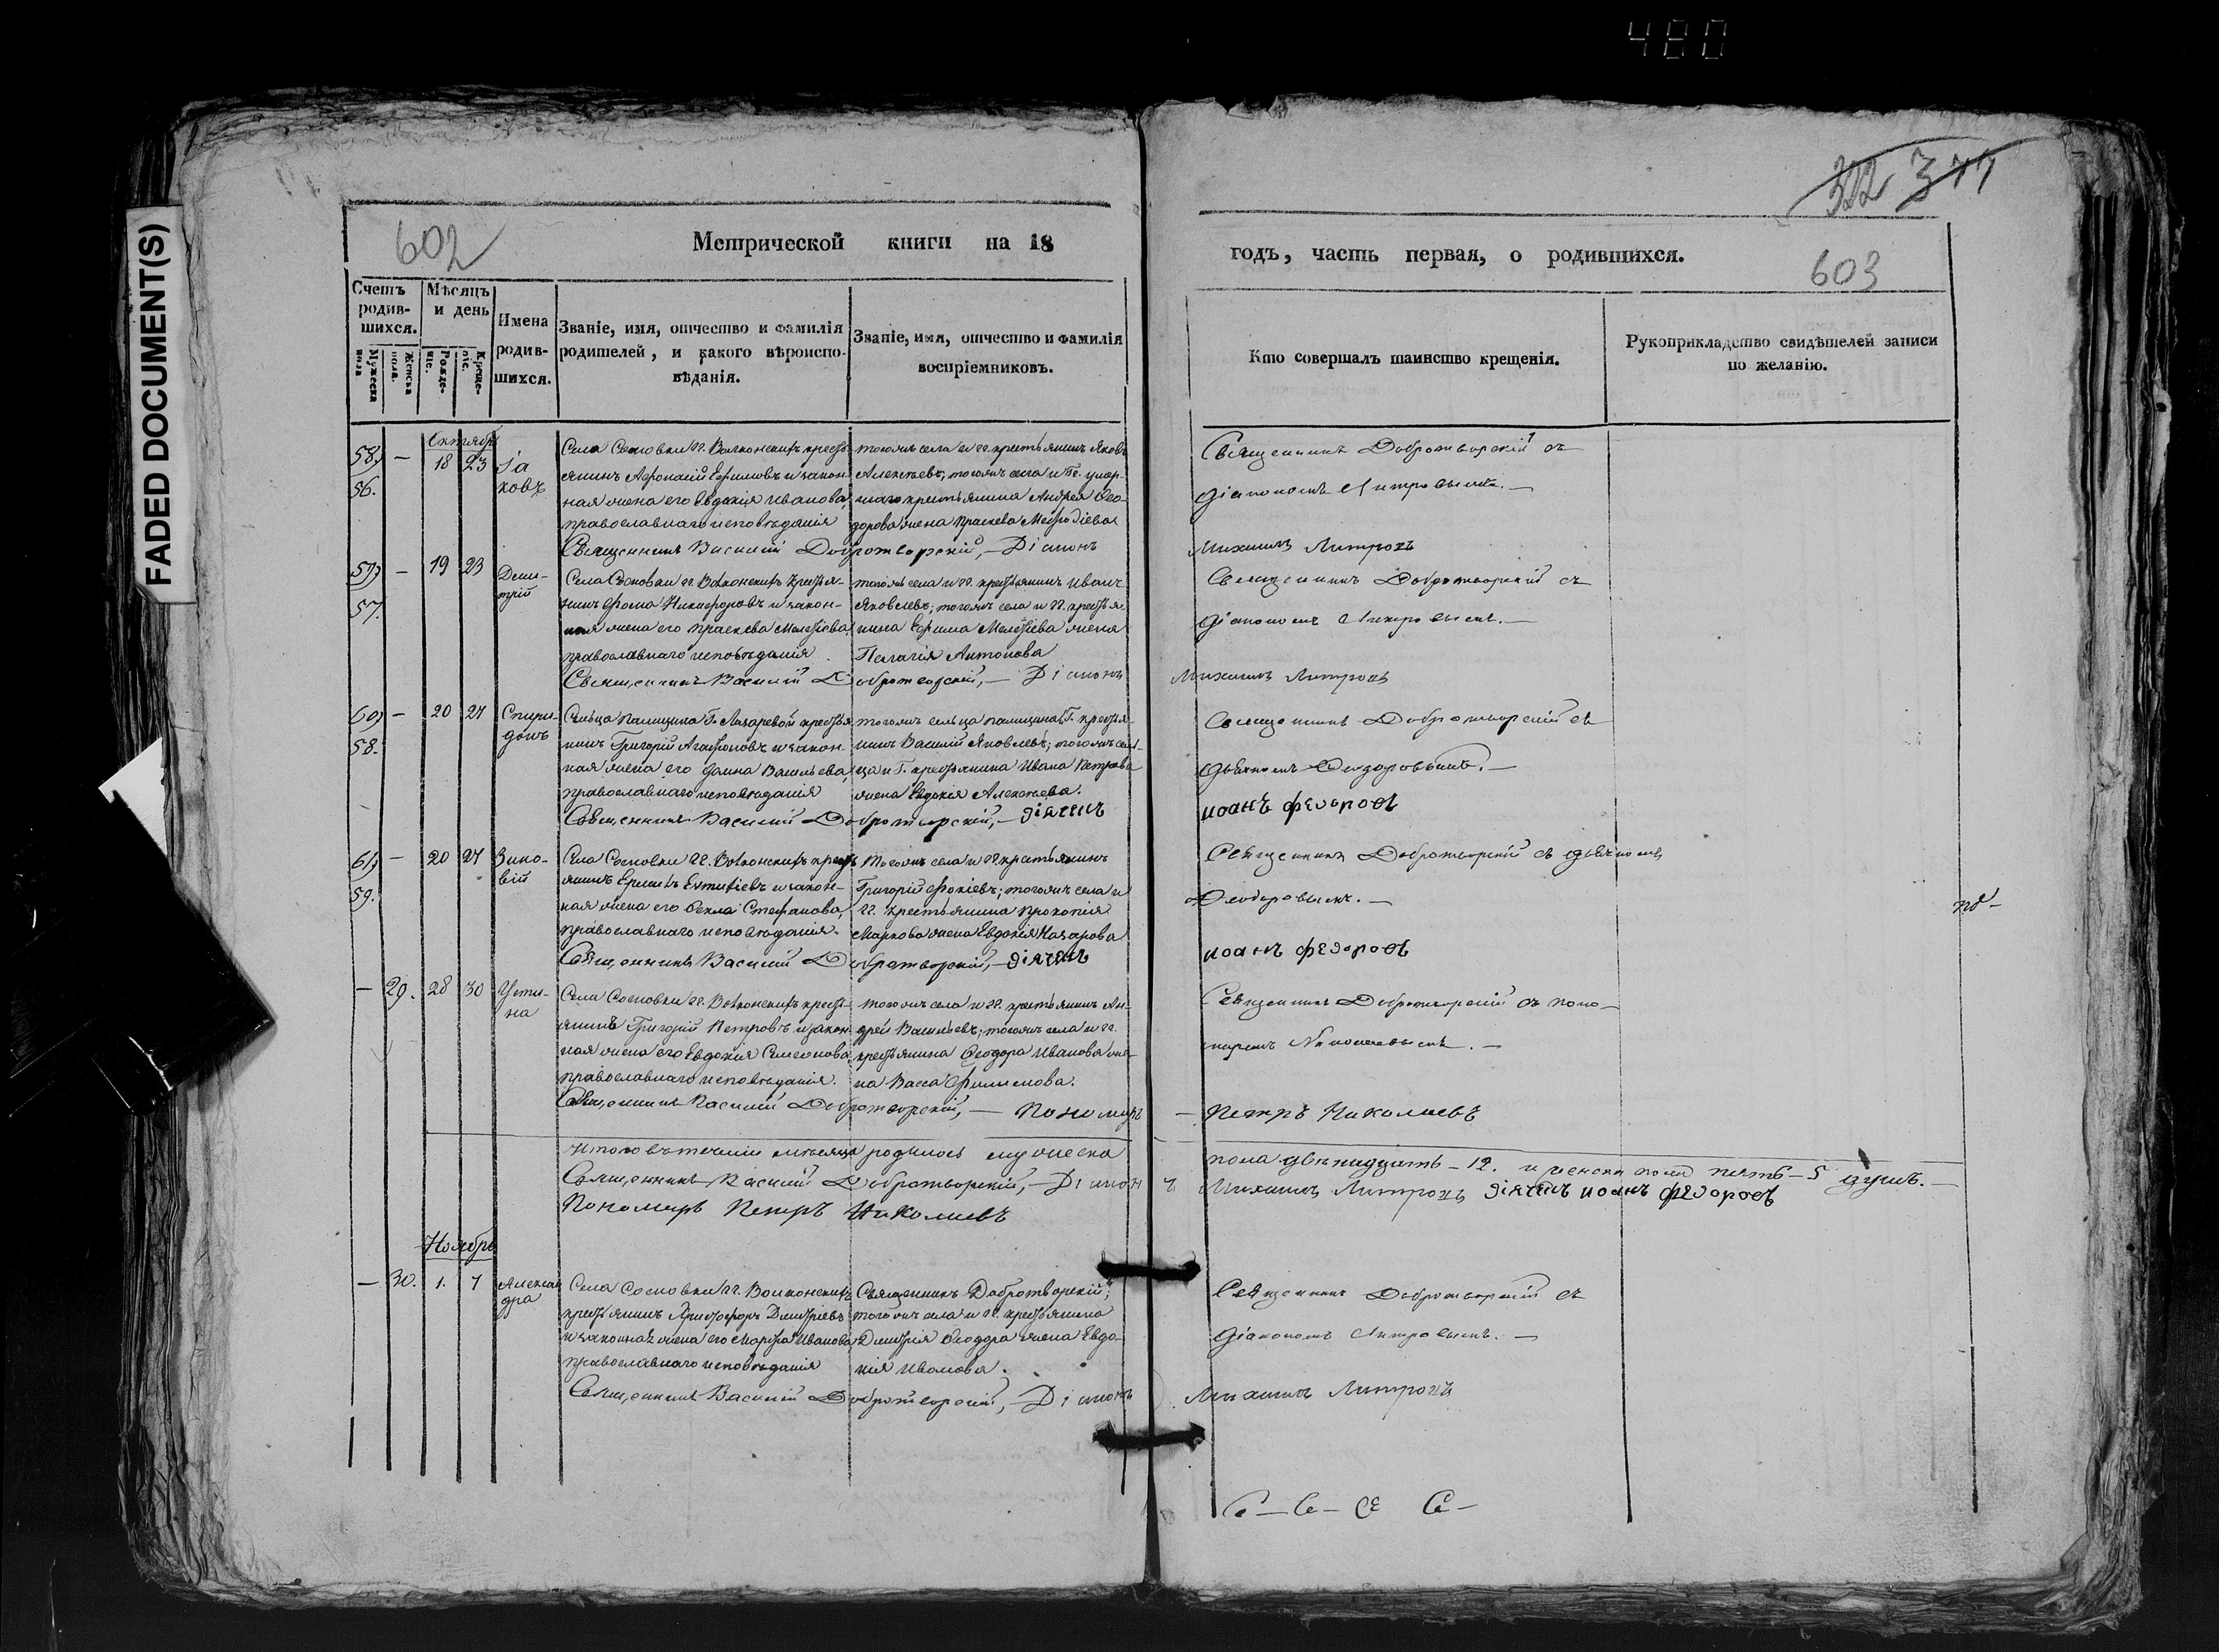 480
FADED DOCUMENT(S)
322 377
602
Метрической книги на 18
годъ, часть первая, о родившихся.
603
Счетъ родив-шихся.
Мужеска пола
Женска пола.
Мѣсяцъ и день
Рожде-нiе.
Креще-нiе.
Имена родив-шихся.
Званiе, имя, отчество и фамилiя родителей, и какого вѣроиспо-вѣданiя.
Званiе, имя, отчество и фамилiя воспрiемниковъ.
Кто совершалъ таинство крещенiя.
Рукоприкладство свидѣтелей записи по желанiю.
Октябрь
58)
56.
— 18 23 Iа
ковъ
Села Сосновки гг. Волконскихъ кресть
янинъ Афонасiй Ефимовъ и закон-
ная жена его Евдокiя Иванова,
православнаго исповѣданiя
тогожъ села и гг. крестьянинъ Яковъ
Алексѣевъ; тогожъ села и гг. умер-
шаго крестьянина Андрея Ѳео-
дорова жена Праскева Меѳодiева
Священникъ Добротворскiй съ
дiакономъ Митровымъ. —
Священникъ Василiй Добротворскiй, — Дiаконъ
Михаилъ Митровъ
57.
— 19 23 Дими-
трiй
Села Сосновки гг. Волконскихъ крестья-
нинъ Фома Никифоровъ и закон-
ная жена его Праскева Мелетiева
православнаго исповѣданiя
тогожъ села и гг. крестьянинъ Иванъ
Яковлевъ; тогожъ села и гг. крестья-
нина Ефима Мелетiева жена
Пелагiя Антонова
Священникъ Добротворскiй съ
дiакономъ Митровымъ. —
Священникъ Василiй Добротворскiй, — Дiаконъ
Михаилъ Митровъ
60)
58.
— 20 27 Спири-
донъ
Сельца Палицина Г. Лазаревой крестья
нинъ Григорiй Агафоновъ и закон-
ная жена его Васильева,
православнаго исповѣданiя
тогожъ сельца Палицина Г. крестья-
нинъ Василiй Яковлевъ; тогожъ сель-
ца и Г. крестьянина Ивана Петрова
жена Евдокiя Алексеева.
Священникъ Добротворскiй съ
дьячкомъ Ѳеодоровымъ. —
Священникъ Василiй Добротворскiй, — дiячекъ
иоанъ федоровъ
61)
59.
— 20 27 Зино-
вiй
Села Сосновки гг. Волконскихъ кресть
янинъ Ермилъ Евтифiевъ и закон-
ная жена его Ѳекла Стефанова,
православнаго исповѣданiя.
Тогожъ села и гг. крестьянинъ
Григорiй Фокiевъ; тогожъ села и
гг. крестьянина Прокопiя
Маркова жена Евдокiя Назарова
Священникъ Добротворскiй съ дьячкомъ
Ѳеодоровымъ. —
Священникъ Василiй Добротворскiй, — дiячекъ
иоанъ федоровъ
— 29. 28 30 Усти-
на
Села Сосновки гг. Волконскихъ кресть-
янинъ Григорiй Петровъ и закон-
ная жена его Евдокiя Симеонова
православнаго исповѣданiя.
тогожъ села и гг. крестьянинъ Ан-
дрей Васильевъ; тогожъ села и гг.
крестьянина Ѳеодора Иванова же-
на Васса Филимова.
Священникъ Добротворскiй съ поно-
маремъ Николаевымъ. —
Священникъ Василiй Добротворскiй, — Пономарь
— Петръ Николаевъ
Итого въ теченiи мѣсяца родилось мужеска
пола двенадцать — 12. и женска пола пять — 5 душъ. —
Священникъ Василiй Добротворскiй, — Дiаконъ
Михаилъ Митровъ дiячекъ иоанъ федоровъ
Пономарь Петръ Николаевъ
Ноябрь
— 30. 1. 7 Алексан
дра
Села Сосновки гг. Волконскихъ
крестьянинъ Христофоръ Димитрiевъ
и законная жена его Марфа Иванова,
православнаго исповѣданiя
Священникъ Добротворскiй;
тогожъ села и гг. крестьянина
Димитрiя Ѳеодора жена Евдо-
кiя Иванова.
Священникъ Добротворскiй съ
дiакономъ Митровымъ. —
Священникъ Василiй Добротворскiй, — Дiаконъ
Михаилъ Митровъ